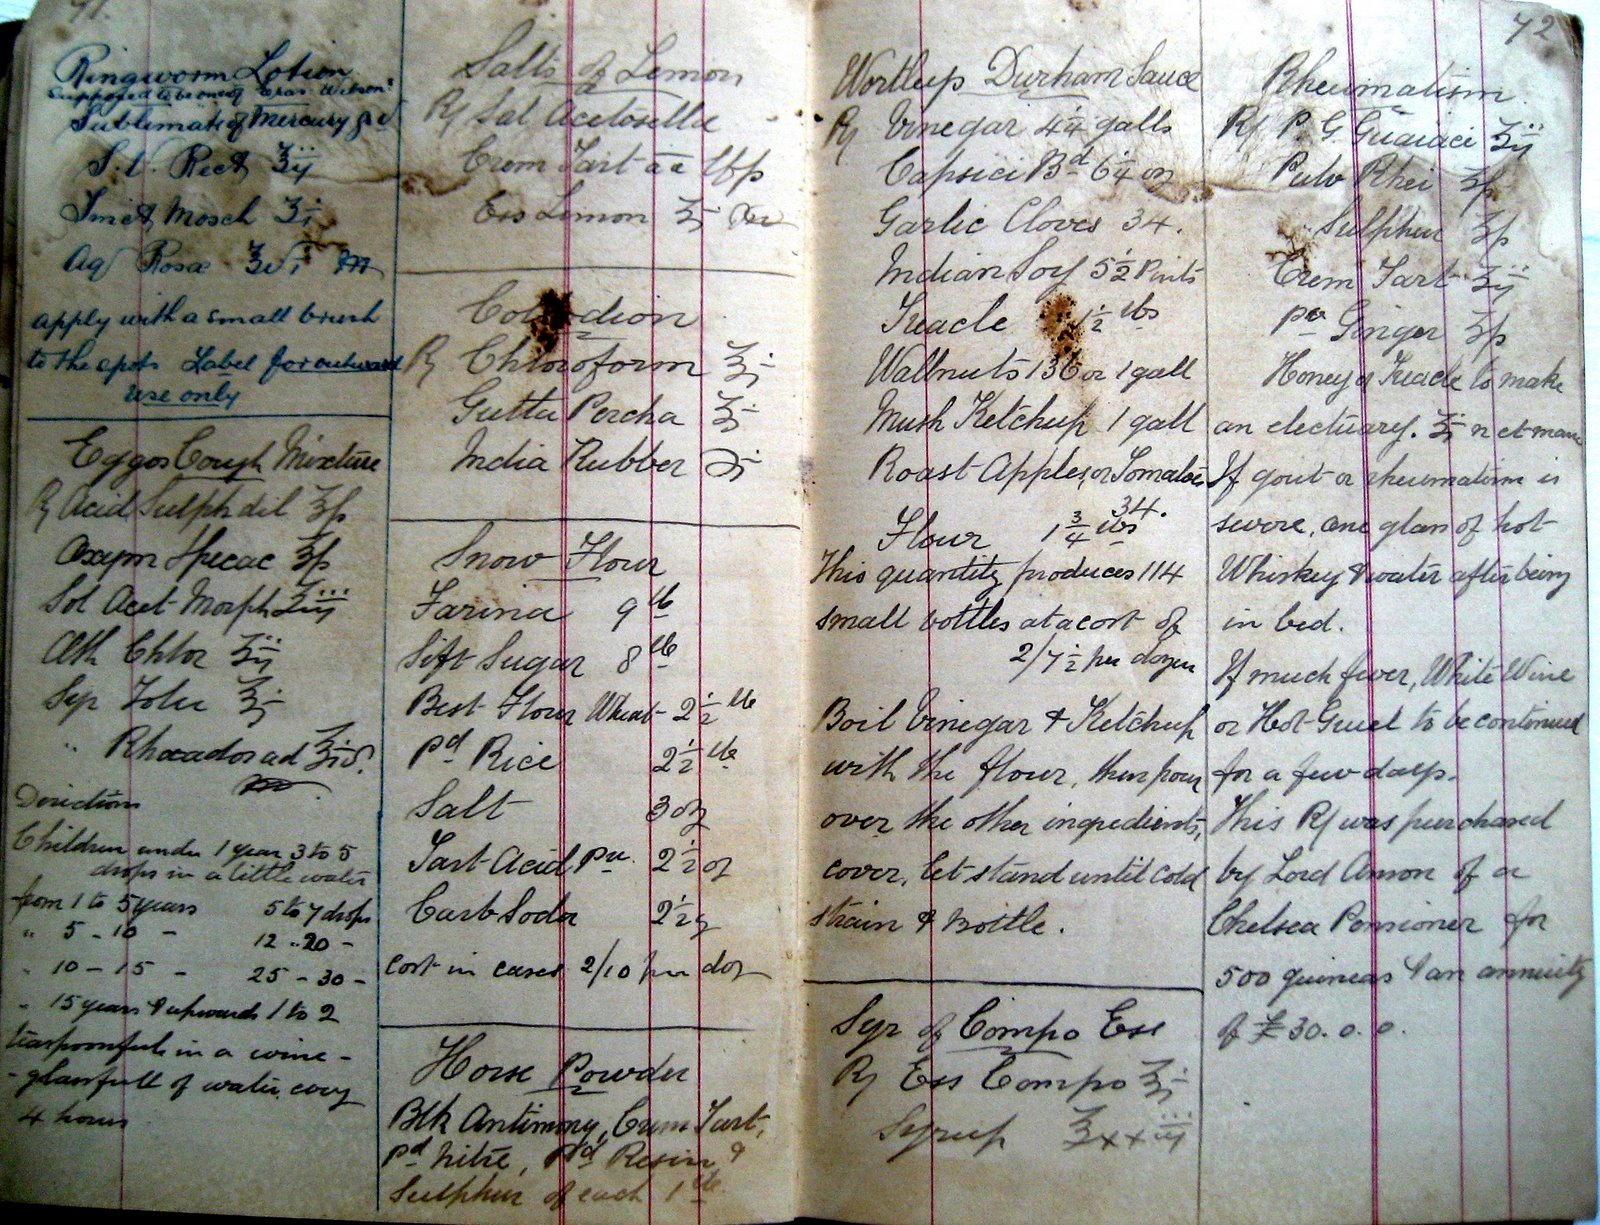 41.
Ringworm Lotion
Supposed to be one of Eras. Wilson's
Sublimate of Mercury gr
S. V. Rect ʒij
Tinct Mosch ʒj
Aq Rosæ ʒvi
apply with a small brush
to the spots Label for outward
use only
Eggos Cough Mixture
℞ Acid Sulph dil ʒß
Oxym Ipecac ʒß
Sol Acet Morph ʒiij
Æth Chlor ʒij
Syr Tolu ʒj
" Rhæados ad
Directions
Children under 1 year 3 to 5
drops in a little water
from 1 to 5 years 5 to 7 drops
" 5 - 10 - 12 - 20 -
" 10 - 15 - 25 - 30 -
" 15 years & upwards 1 to 2
teaspoonfuls in a wine -
- glassfull of water every
4 hours
Salts of Lemon
℞ Sal Acetosellæ
Crem Tart aa lbß
Ess Limon ʒj
Collodion
℞ Chloroform ℥j
Gutta Percha ʒj
India Rubber ℈j
Snow Flour
Farina 9 lb
Sift Sugar 8 lb
Best Flour Wheat 2½ lb
Pd Rice 2½ lb
Salt 3 oz
Tart Acid Pu. 2½ oz
Carb Soda 2½ oz
cost in cases 2/10 per doz
Horse Powder
Blk Antimony, Crem Tart,
Pd Nitre, Pd Resin &
Sulphur of each 1 lb
42
Worthup Durham Sauce
℞ Vinegar 4¼ galls
Capsici Bd 6¼ oz
Garlic Cloves 34.
Indian Soy 5½ Pints
Treacle 1½ lbs
Wallnuts 136 or 1 gall
Mush Ketchup 1 gall
Roast Apples, or Tomatoes
34.
Flour 1¾ lbs
This quantity produces 114
small bottles at a cost of
2/7½ per dozen
Boil Vinegar & Ketchup
with the flour, then pour
over the other ingredients,
cover, let stand until cold
strain & Bottle.
Syr of Compo Ess
℞ Ess Compo ʒj
Syrup
Rheumatism
℞ P. G. Guaiaci ʒij
Pulv Rhei ʒß
Sulphur ʒß
Crem Tart ʒij
Pv Ginger ʒß
Honey or Treacle to make
an electuary. ʒj n et mane
If gout or rheumatism is
severe, one glass of hot
Whiskey & water after being
in bed.
If much fever, White Wine
or Hot Gruel to be continued
for a few days.
This ℞ was purchased
by Lord Anson of a
Chelsea Pensioner for
500 guineas & an annuity
of £30. 0. 0.